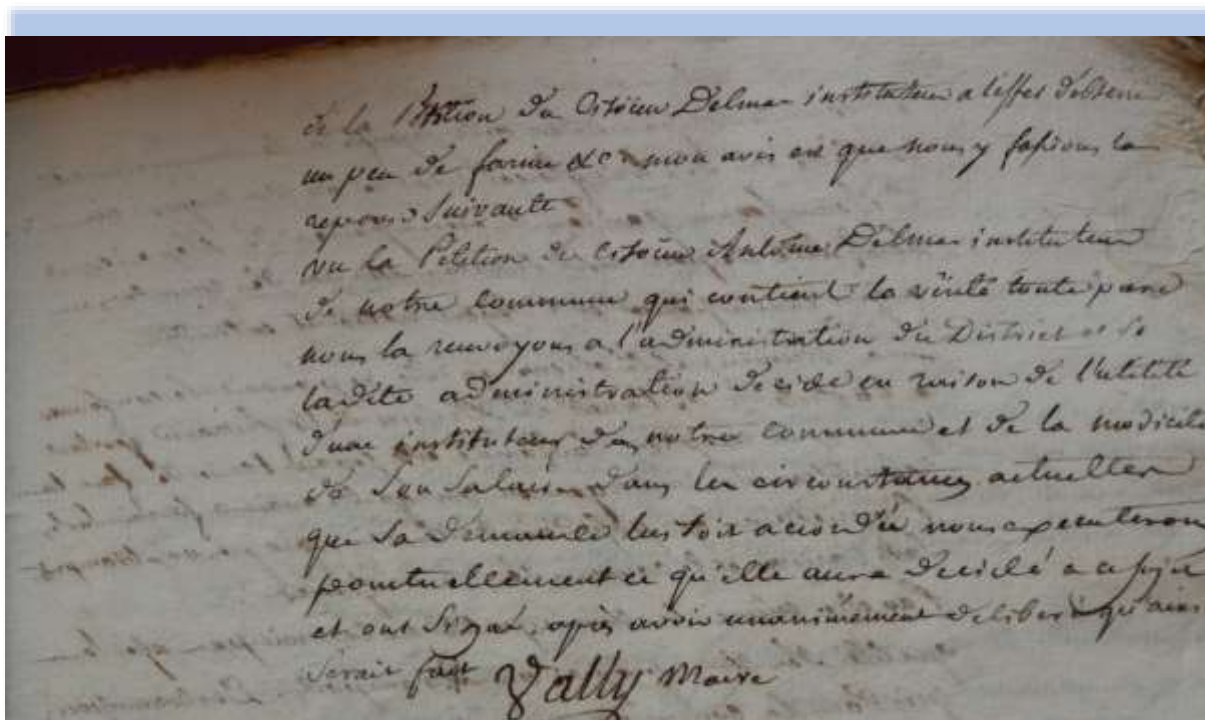 de la Pétition du Citoïen Delmas instituteur a l'effet d'obtenir
un peu de farine &c mon avis est que nous y fassions la
reponse suivante
vu la Pétition du Citoïen Antoine Delmas instituteur
de notre commune qui contient la vérité toute pure
nous la renvoyons a l'administration du District et si
ladite administration decide en raison de l'utilité
d'une instituteur dans notre commune et de la modicité
de son salaire dans les circonstances actuelles
que sa demande lui soit accordée nous executerons
ponctuellement ce qu'elle aura decidé a ce sujet
et ont signé, après avoir unanimement deliberé qu'ainsi
serait fait Vally Maire